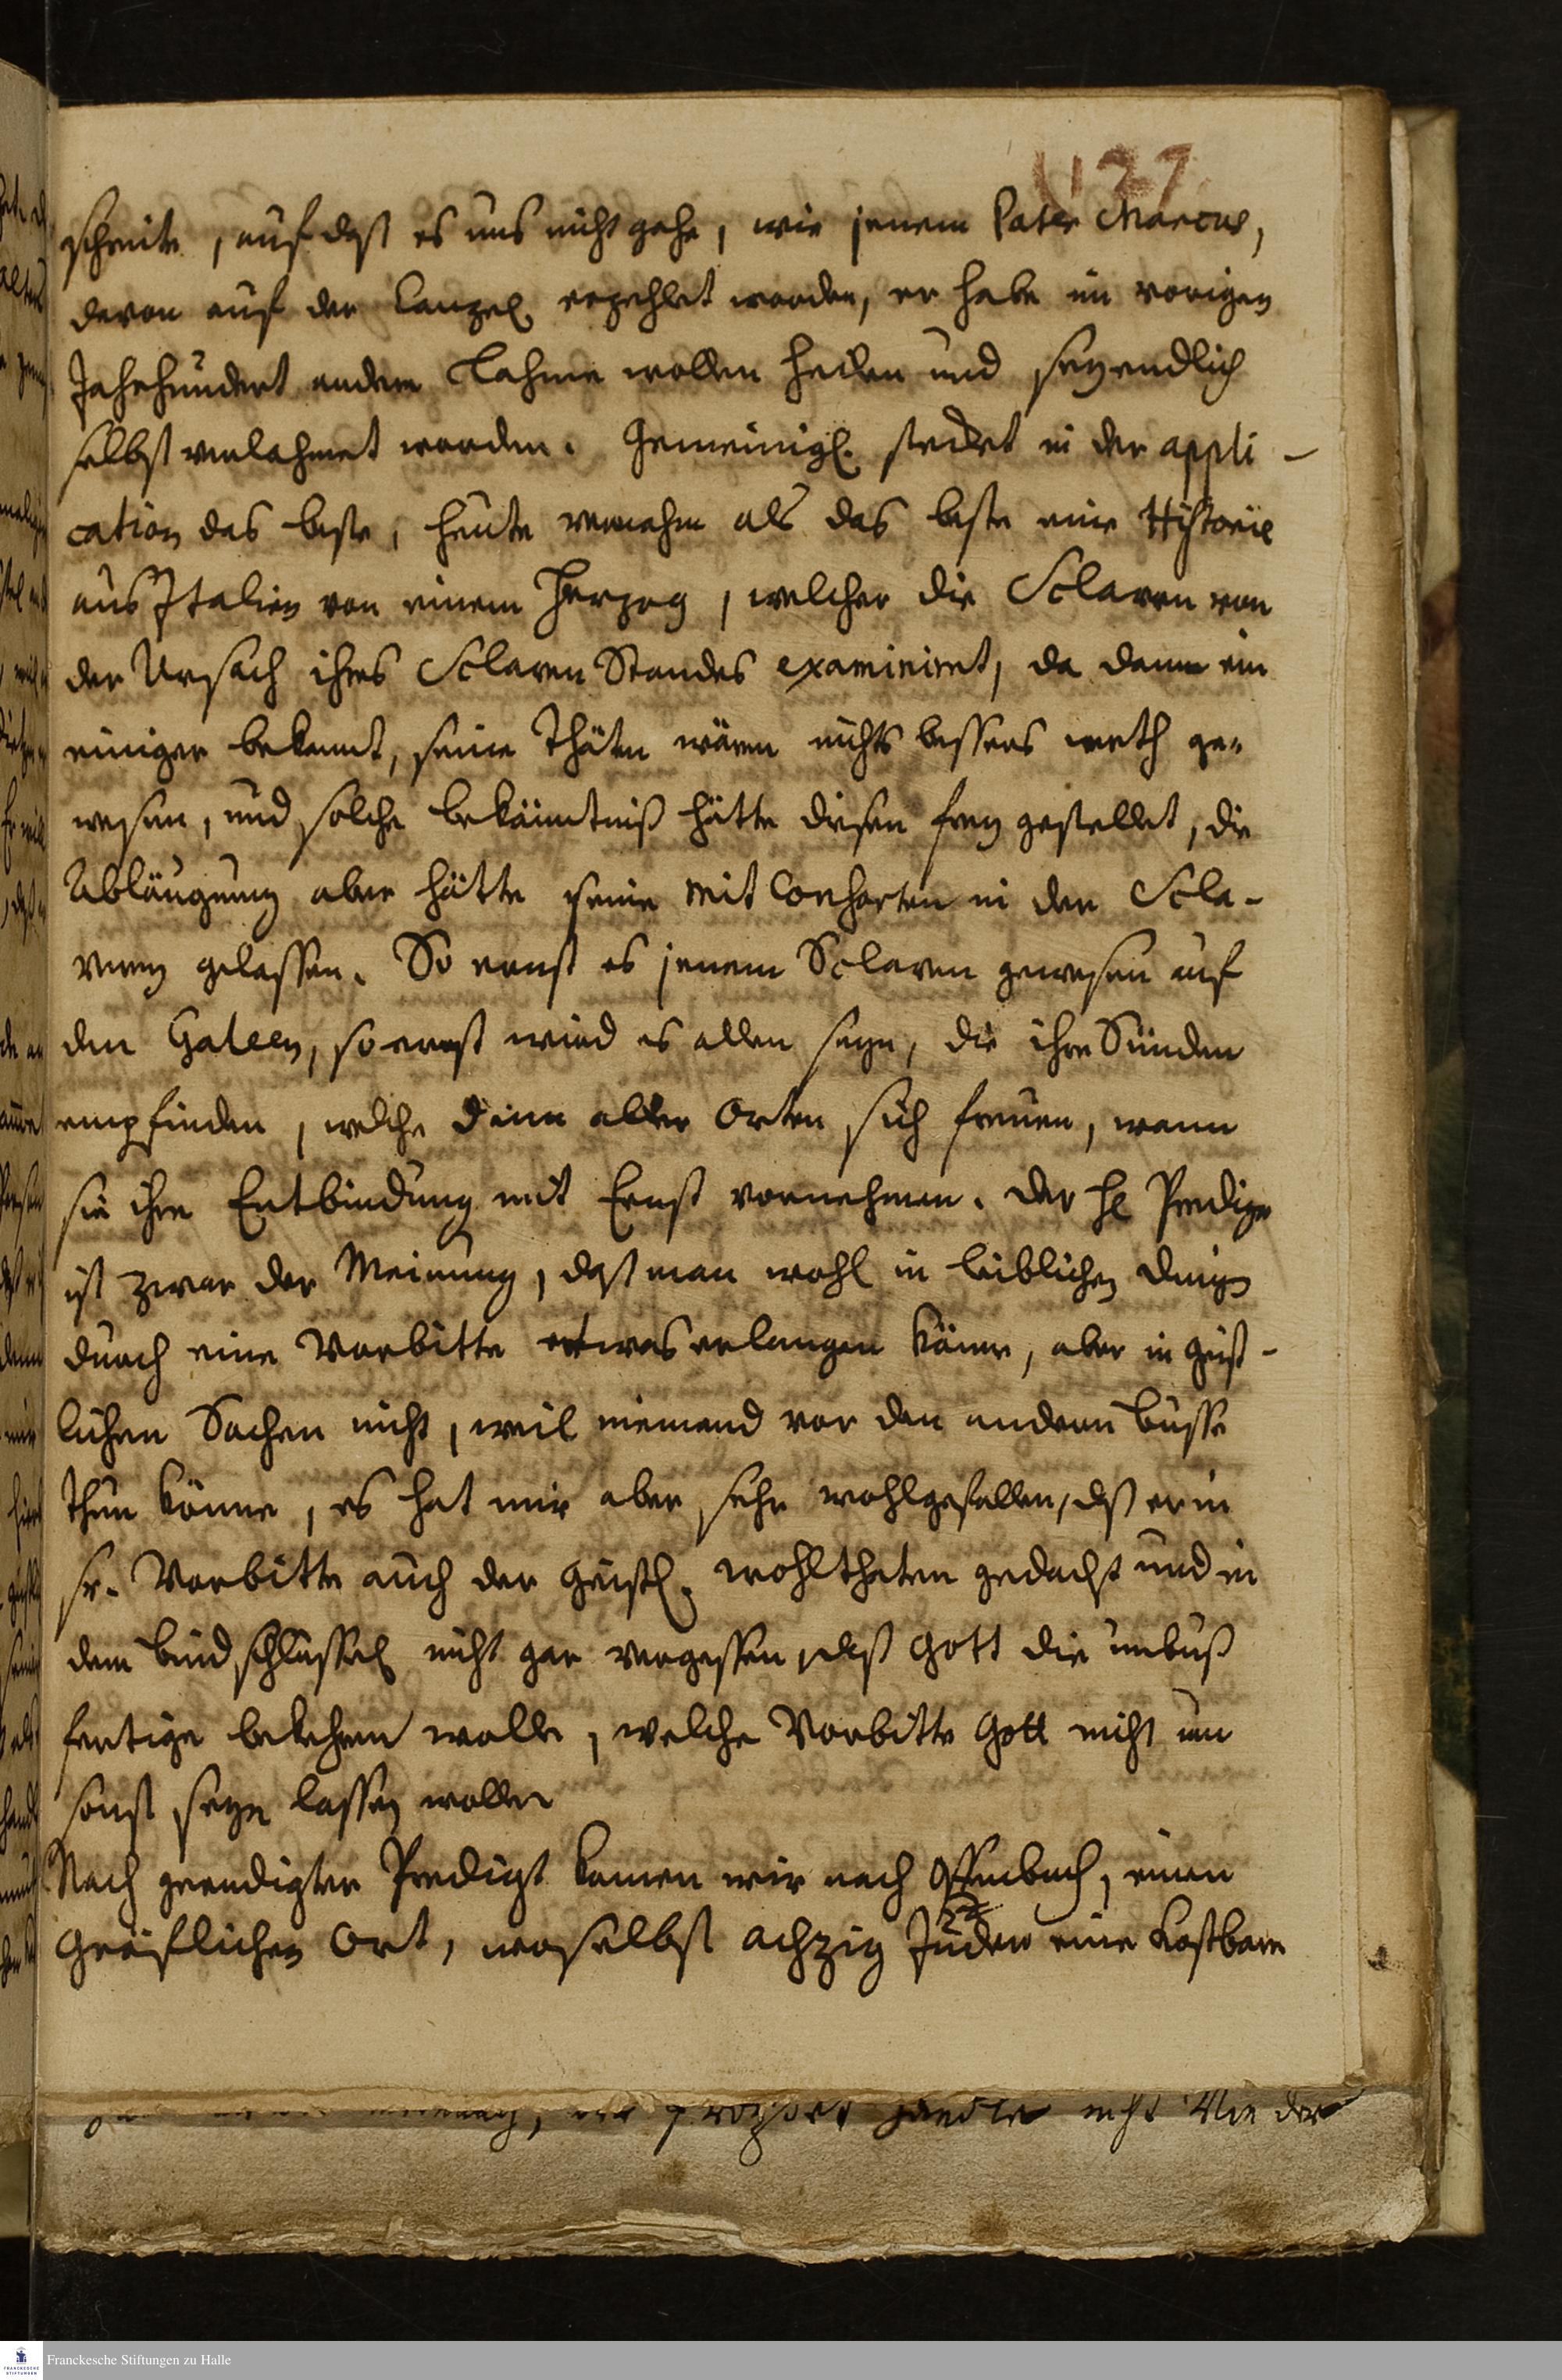 127
schreite, auf daß es uns nicht gehe, wie jenem Pater Marcus,
davon auf der Canzel erzehlet worden, er habe im vorigen
Jahrhundert andere Lahme wollen heilen und sey endlich
selbst verlahmet worden. Gemeinigl. stecket in der appli-
cation das beste, heute vernahm als das beste eine Historie
aus Italien von einem Herzog, welcher die Sclaven von
der Ursach ihres Sclaven Standes examiniret, da dann ein
einiger bekennt, seine Thäten wären nichts bessers werth ge-
wesen, und solche bekäntniß hätte diesen frey gestellet, die
Abläugnung aber hätte seine Mit Consorten in der Scla-
verey gelassen. So ernst es jenem Sclaven gewesen auf
den Galeen, so ernst wird es allen seyn, die ihre Sünden
empfinden, welche dann aller Orten sich freuen, wann
sie ihre Entbindung mit Ernst vornehmen. Der H Prediger
ist zwar der Meinung, daß man wohl in leiblichen Dingen
durch eine Vorbitte etwas erlangen könne, aber in geist-
lichen Sachen nicht, weil niemand vor den andern busse
thun könne, es hat mir aber sehr wohlgefallen, dß er in
sr. Vorbitte auch der geistl. wohlthaten gedacht und in
dem bindschlüssel nicht gar vergessen, daß Gott die unbuß
fertige bekehren wolle, welche Vorbitte Gott nicht um
sonst seyn lassen wolle
Nach geendigter Predigt kamen wir nach Offenbach, einen
Gräflichen Ort, woselbst achzig Juden eine kostbare
nicht Wie der
Franckesche Stiftungen zu Halle